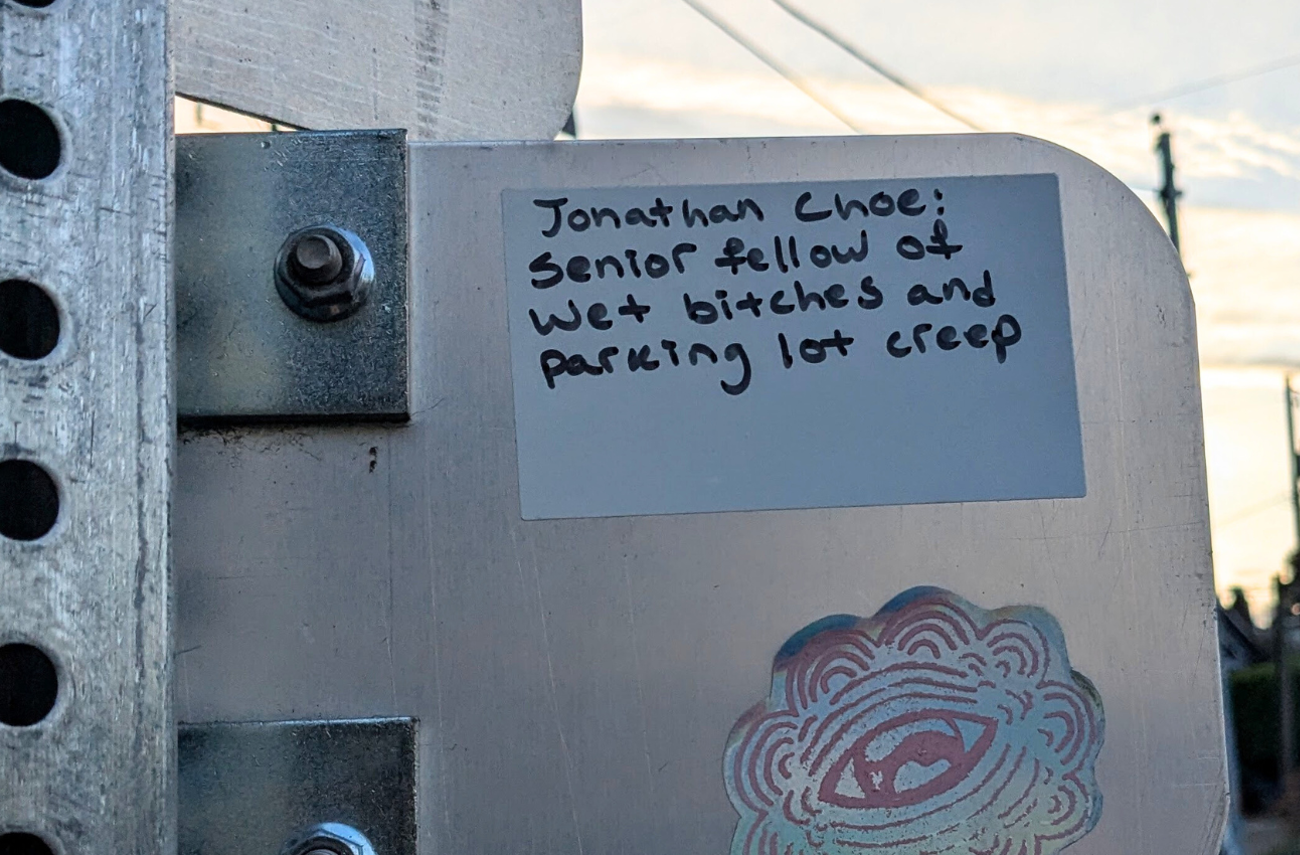 Jonathan Choe:
senior fellow of
wet bitches and
parking lot creep